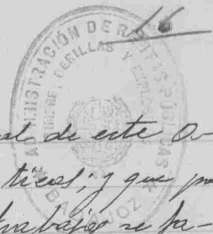 16
ADMINISTRACIÓN DE RENTAS PÚBLICAS
TIMBRE, CERILLAS Y EXPLOSIVOS
BADAJOZ
al de este O-
ticos; y que p
trabajos se ha-